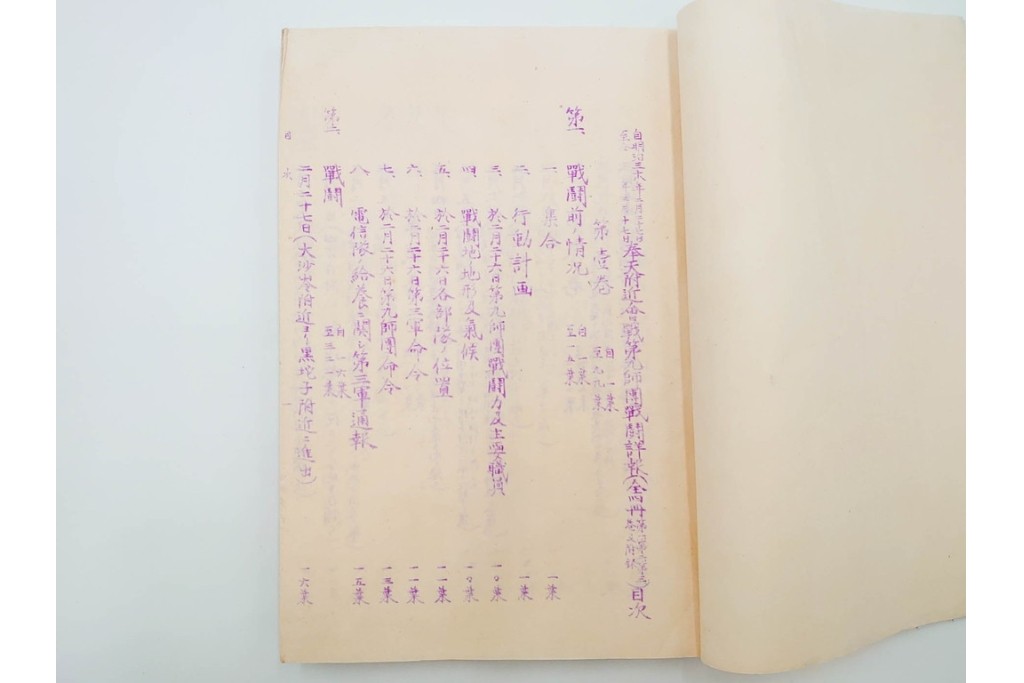 自明治三十八年二月二十七日
奉天附近會戰第九師團戰鬪詳報(全四冊)目次
第壹巻 自一葉 至九九葉
第一、戰鬪前ノ情況 自一葉 至一五葉
一、集合 一葉
二、行動計画 一葉
三、於二月二十六日第九師團戰鬪力及主要職員 一〇葉
四、戰鬪地地形及氣候 一〇葉
五、於二月二十六日各部隊ノ位置 一一葉
六、於二月二十六日第三軍命令 一一葉
七、於二月二十六日第九師團命令 一三葉
八、電信隊ノ給養ニ関シ第三軍通報 一五葉
戰鬪 自一六葉
二月二十七日(大沙岺附近ヨリ黒坨子附近ニ進出) 一六葉
目次 一